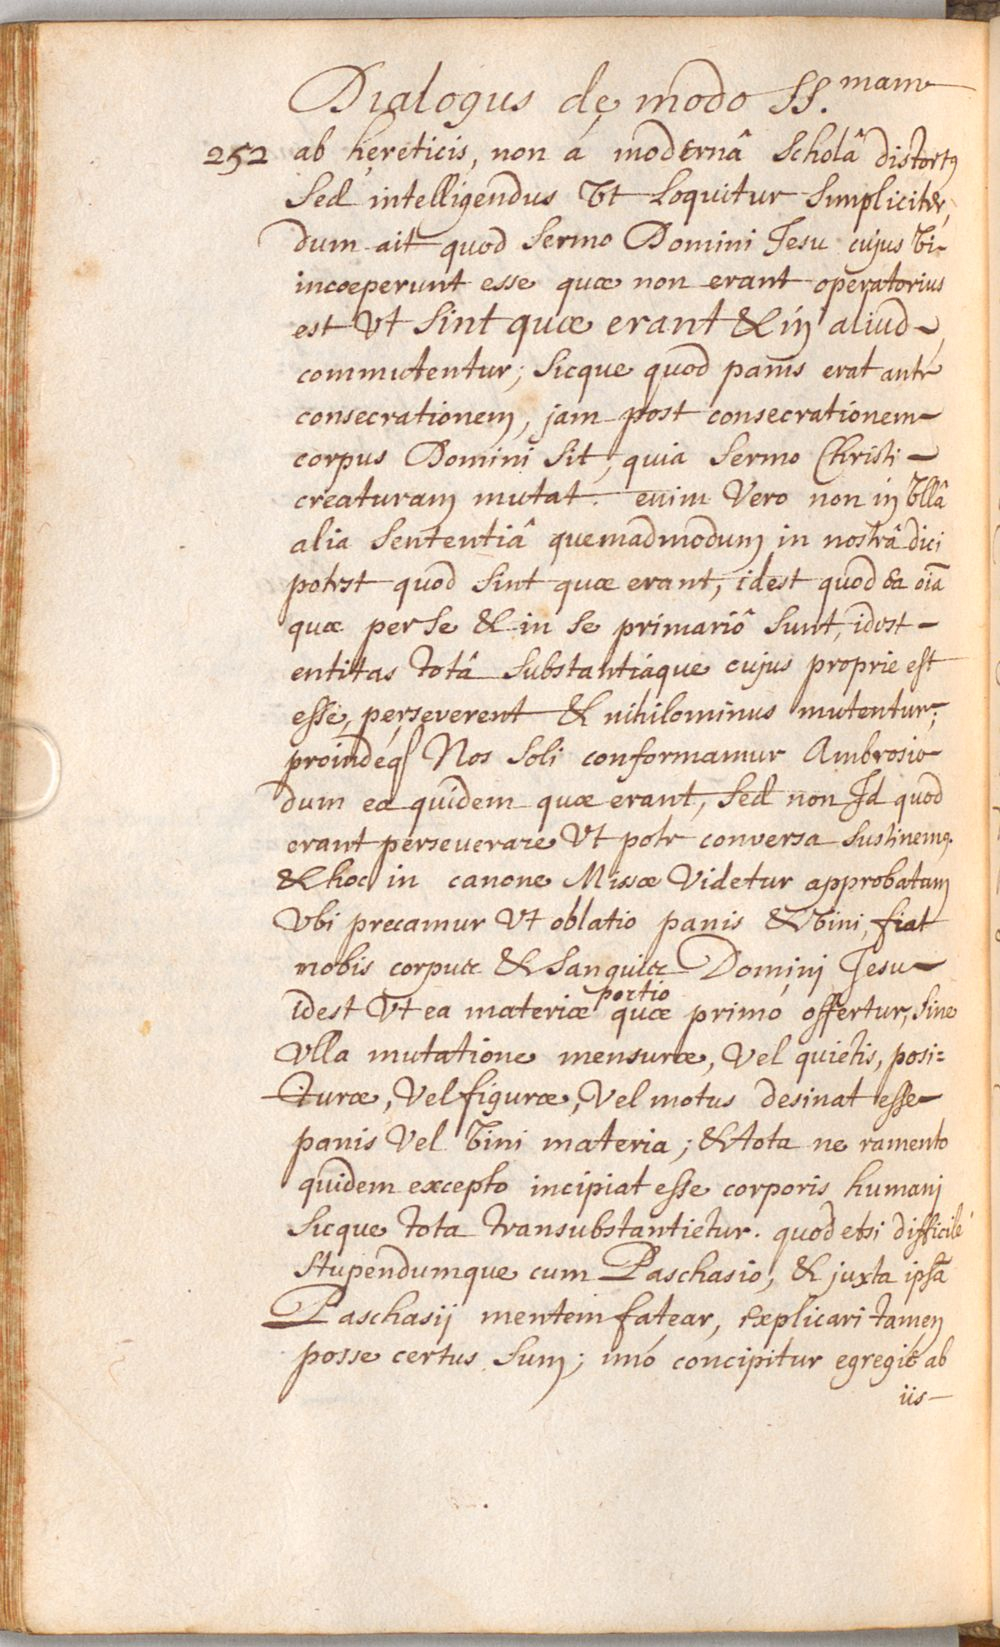 Dialogus de modo SS.mam
252 ab hereticis, non á modernâ Scholâ distortus
Sed intelligendus Vt Loquitur Simpliciter,
dum ait quod Sermo Domini Jesu cujus Vi
incoeperunt esse quæ non erant operatorius
est Vt Sint quæ erant & in aliud
commutentur; Sicque quod panis erat ante
consecrationem, jam post consecrationem
corpus Domini Sit, quia Sermo Christi
creaturam mutat. enim Vero non in Vllâ
alia Sententiâ quemadmodum in nostrâ dici
potest quod Sint quæ erant, idest quod ea oīa
quæ per Se & in Se primariô Sunt, idest
entitas totâ Substantiáque cujus proprie est
esse, perseverent & nihilominus mutentur;
proindeq Nos Soli conformamur Ambrosio
dum ea quidem quæ erant, Sed non Id quod
erant perseuerare Vt pote conversa Sustinemq.
& hoc in canone Missæ Videtur approbatam
Vbi precamur Vt oblatio panis & Vini, fiat
nobis corpus & Sanguis Domini Jesu
idest Vt ea materiæ portio quæ primó offertur, Sine
Vlla mutatione mensuræ, Vel quietis, posi=
turæ, Vel figuræ, Vel motus desinat esse
panis Vel Vini materia; & tota ne ramento
quidem excepto incipiat esse corporis humani
Sicque tota transubstantietur. quod etsi difficilé
Stupendumque cum Paschasio, & juxta ipsā
Paschasij mentem fatear, explicari tamen
posse certus Sum; imó concipitur egregié ab
iis